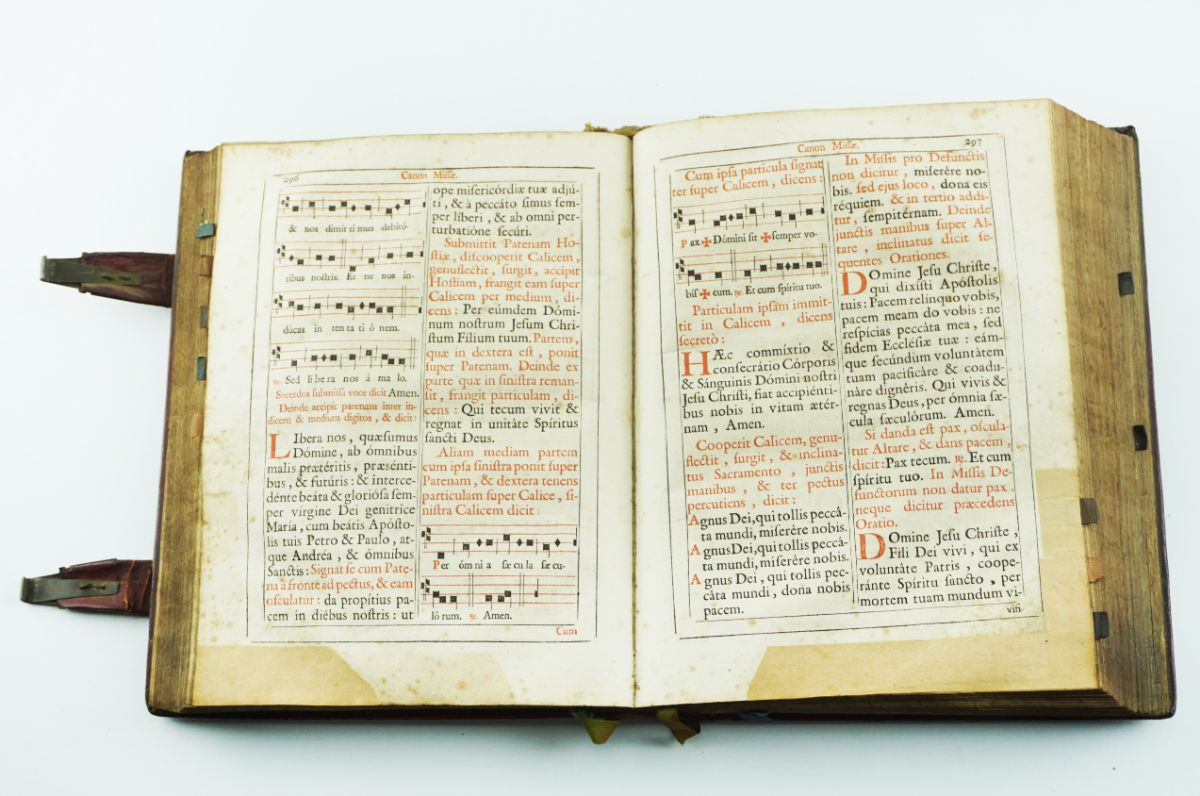 296
Canon Missæ.
& nos dimittimus debitó-
ribus nostris. Et ne nos in-
dúcas in tentatiónem.
℟. Sed libera nos á malo.
Sacerdos submissa voce dicit Amen.
Deinde accipit patenam inter in-
dicem & medium digitos, & dicit:
LIbera nos, quæsumus
Dómine, ab ómnibus
malis prætéritis, præsénti-
bus, & futúris: & interce-
dénte beáta & gloriósa sem-
per virgine Dei genitrice
María, cum beátis Apósto-
lis tuis Petro & Paulo, at-
que Andréa, & ómnibus
Sanctis: Signat se cum Pate-
na à fronte ad pectus, & eam
osculatur: da propítius pa-
cem in diébus nostris: ut
ope misericórdiæ tuæ adjú-
ti, & à peccáto simus sem-
per líberi, & ab omni per-
turbatióne secúri.
Submittit Patenam Ho-
stiæ, discooperit Calicem,
genuflectit, surgit, accipit
Hostiam, frangit eam super
Calicem per medium, di-
cens: Per eúmdem Dómi-
num nostrum Jesum Chri-
stum Filium tuum. Partem,
quæ in dextera est, ponit
super Patenam. Deinde ex
parte quæ in sinistra reman-
sit, frangit particulam, di-
cens: Qui tecum vivit &
regnat in unitáte Spíritus
sancti Deus.
Aliam mediam partem
cum ipsa sinistra ponit super
Patenam, & dextera tenens
particulam super Calice, si-
nistra Calicem dicit:
Per ómnia sæcula sæcu-
lórum. ℟. Amen.
Cum
Canon Missæ.
297
Cum ipsa particula signat
ter super Calicem, dicens:
Pax ✠ Dómini sit ✠ semper vo-
bis ✠ cum. ℟. Et cum spíritu tuo.
Particulam ipsam immit-
tit in Calicem, dicens
secretò:
HÆc commíxtio &
consecrátio Córporis
& Sánguinis Dómini nostri
Jesu Christi, fiat accipiénti-
bus nobis in vitam ætér-
nam, Amen.
Cooperit Calicem, genu-
flectit, surgit, & inclina-
tus Sacramento, junctis
manibus, & ter pectus
percutiens, dicit:
Agnus Dei, qui tollis peccá-
ta mundi, miserére nobis.
Agnus Dei, qui tollis peccá-
ta mundi, miserére nobis.
Agnus Dei, qui tollis pec-
cáta mundi, dona nobis
pacem.
In Missis pro Defunctis
non dicitur, miserére no-
bis. sed ejus loco, dona eis
réquiem. & in tertio addi-
tur, sempitérnam. Deinde
junctis manibus super Al-
tare, inclinatus dicit se-
quentes Orationes.
DOmine Jesu Christe,
qui dixísti Apóstolis
tuis: Pacem relinquo vobis,
pacem meam do vobis: ne
respícias peccáta mea, sed
fidem Ecclésiæ tuæ: eám-
que secúndum voluntátem
tuam pacificáre & coadu-
náre dignéris. Qui vivis &
regnas Deus, per ómnia sæ-
cula sæculórum. Amen.
Si danda est pax, oscula-
tur Altare, & dans pacem,
dicit: Pax tecum. ℟. Et cum
spíritu tuo. In Missis De-
functorum non datur pax
neque dicitur præcedens
Oratio.
DOmine Jesu Christe,
Fili Dei vivi, qui ex
voluntáte Patris, coope-
ránte Spíritu sancto, per
mortem tuam mundum vi-
vifi-